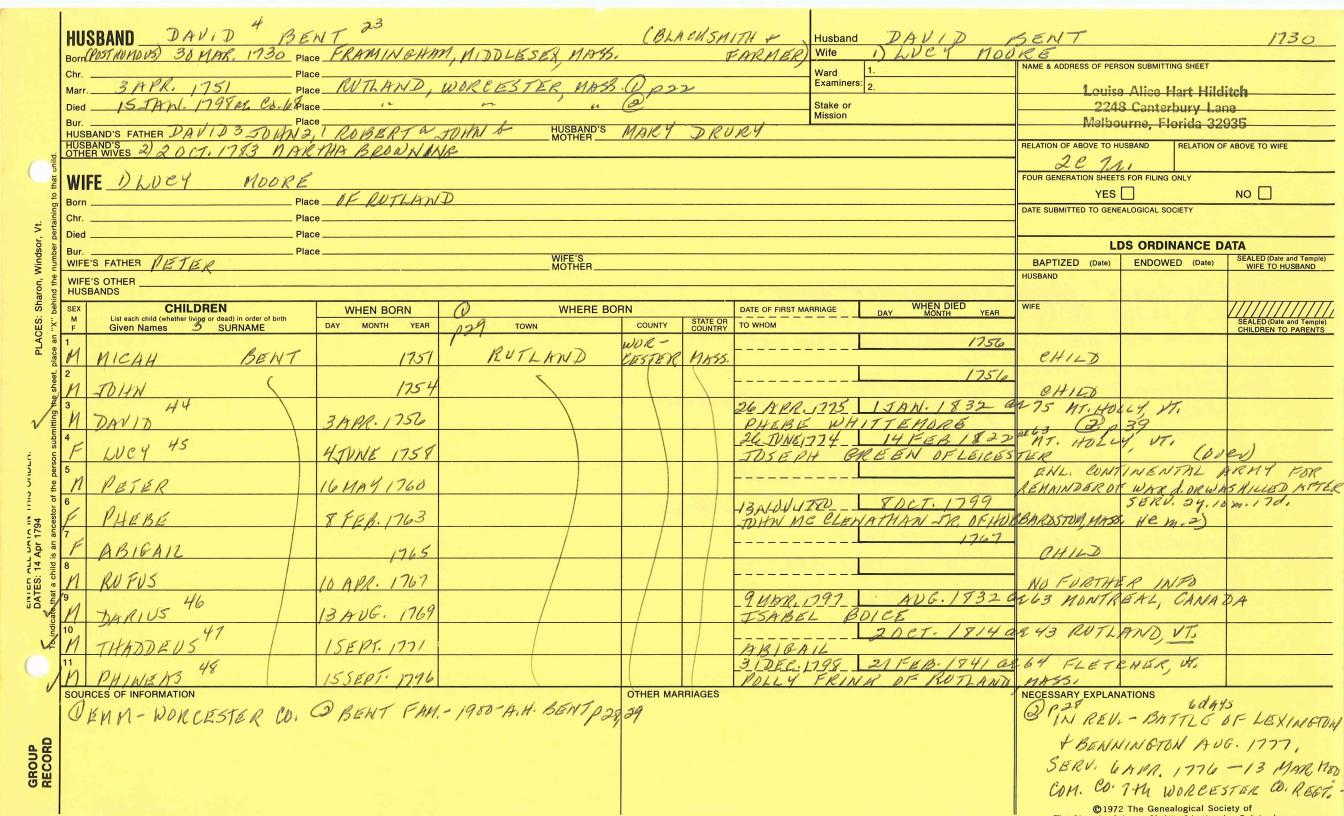 HUSBAND DAVID 4 BENT 23 (BLACKSMITH & FARMER)
Born (POSTHUMOUS) 30 MAR. 1730 Place FRAMINGHAM, MIDDLESEX, MASS.
Chr. Place
Marr. 3 APR. 1751 Place RUTLAND, WORCESTER, MASS. ② p22
Died 15 JAN. 1798 Place " " " ②
Bur. Place
HUSBAND'S FATHER DAVID 3, JOHN 2, 1 ROBERT JOHN
HUSBAND'S MOTHER MARY DRURY
HUSBAND'S OTHER WIVES 2) 2 OCT. 1783 MARTHA BROWNING
WIFE 1) LUCY MOORE
Born Place OF RUTLAND
Chr. Place
Died Place
Bur. Place
WIFE'S FATHER PETER
WIFE'S MOTHER
WIFE'S OTHER HUSBANDS
Husband DAVID BENT 1730
Wife 1) LUCY MOORE
Ward Examiners: 1. 2.
Stake or Mission
NAME & ADDRESS OF PERSON SUBMITTING SHEET
Louise Alice Hart Hilditch
2248 Canterbury Lane
Melbourne, Florida 32935
RELATION OF ABOVE TO HUSBAND RELATION OF ABOVE TO WIFE
FOUR GENERATION SHEETS FOR FILING ONLY
YES NO
DATE SUBMITTED TO GENEALOGICAL SOCIETY
LDS ORDINANCE DATA
BAPTIZED (Date) ENDOWED (Date) SEALED (Date and Temple) WIFE TO HUSBAND
HUSBAND
WIFE
SEALED (Date and Temple) CHILDREN TO PARENTS
SEX M F
CHILDREN
List each child (whether living or dead) in order of birth
Given Names 5 SURNAME
WHEN BORN
DAY MONTH YEAR
② p29
WHERE BORN
TOWN COUNTY STATE OR COUNTRY
DATE OF FIRST MARRIAGE
TO WHOM
WHEN DIED
DAY MONTH YEAR
1 M MICAH BENT 1751 RUTLAND WORCESTER MASS. 1756 CHILD
2 M JOHN 1754 1756 CHILD
3 M DAVID 44 3 APR. 1756 26 APR. 1775 1 JAN. 1832 ae 75 MT. HOLLY, VT.
PHEBE WHITTEMORE ② p39
4 F LUCY 45 4 JUNE 1758 26 JUNE 1774 14 FEB 1822 ae 63 MT. HOLLY, VT.
JOSEPH GREEN OF LEICESTER (over)
5 M PETER 16 MAY 1760 ENL. CONTINENTAL ARMY FOR
REMAINDER OF WAR d. OR WAS KILLED AFTER
SERV. 2y. 10m. 17d.
6 F PHEBE 8 FEB. 1763 13 NOV. 8 OCT. 1799
JOHN MC CLENATHAN JR. OF HUBBARDSTON, MASS. He m. 2)
7 F ABIGAIL 1765 1767 CHILD
8 M RUFUS 10 APR. 1767 NO FURTHER INFO
9 M DARIUS 46 13 AUG. 1769 9 MAR. 1797 AUG. 1832 ae 63 MONTREAL, CANADA
ISABEL BOICE
10 M THADDEUS 47 1 SEPT. 1771 2 OCT. 1814 ae 43 RUTLAND, VT.
ABIGAIL
11 M PHINEAS 48 15 SEPT. 1776 31 DEC. 1798 21 FEB. 1841 ae 64 FLETCHER, Vt.
POLLY FRINK OF RUTLAND, MASS.
SOURCES OF INFORMATION
① EMM - WORCESTER CO. ② BENT FAM. - 1900 - A.H. BENT p28, 29
OTHER MARRIAGES
NECESSARY EXPLANATIONS
② p28 6 days
IN REV. - BATTLE OF LEXINGTON
+ BENNINGTON AUG. 1777.
SERV. 6 APR. 1776 - 13 MAR. 1780
COM. CO. 7th WORCESTER CO. REGT. -
©1972 The Genealogical Society of
PLACES: Sharon, Windsor, Vt.
ENTER ALL DATA IN THIS ORDER:
DATES: 14 Apr 1794
To indicate that a child is an ancestor of the person submitting the sheet, place an "X" behind the number pertaining to that child.
GROUP RECORD